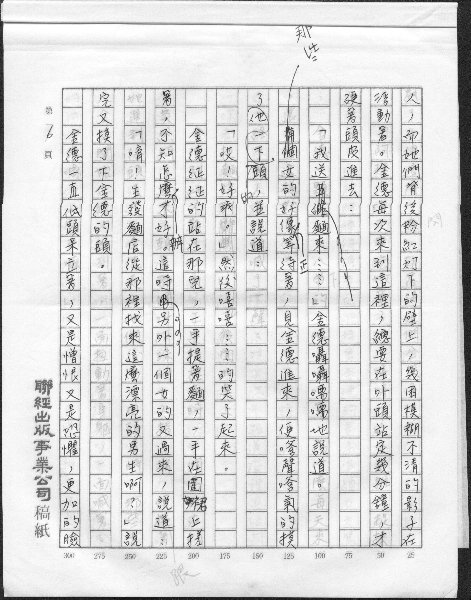 人，而她們背後粉紅灯下的壁上，幾團模糊不清的影子在
活動著。金德每次來到這裡，總要在外頭站定幾分鐘，才
硬著頭皮進去：
「我送麵來……」金德囁囁嚅嚅地說道。
那些
個女的正好德等待著，見金德進來，便嗲聲嗲氣的摸
了他一下頭，並說道：
「哎！好乖。」然後嘻嘻……的笑了起來。
金德怔怔的站在那兒，一手提著麵，一手在圍裙上搓
著，不知怎麼辦才好。這時另外一個女的又過來，說道：
「唷！生發麵店從那裡找來這麼漂亮的男生啊？」說
完又摸了下金德的頭。
金德一直低頭呆立著，又是憎恨又是恐懼，更加的臉
第6頁
聯經出版事業公司稿紙
25
50
75
100
125
150
175
200
225
250
275
300